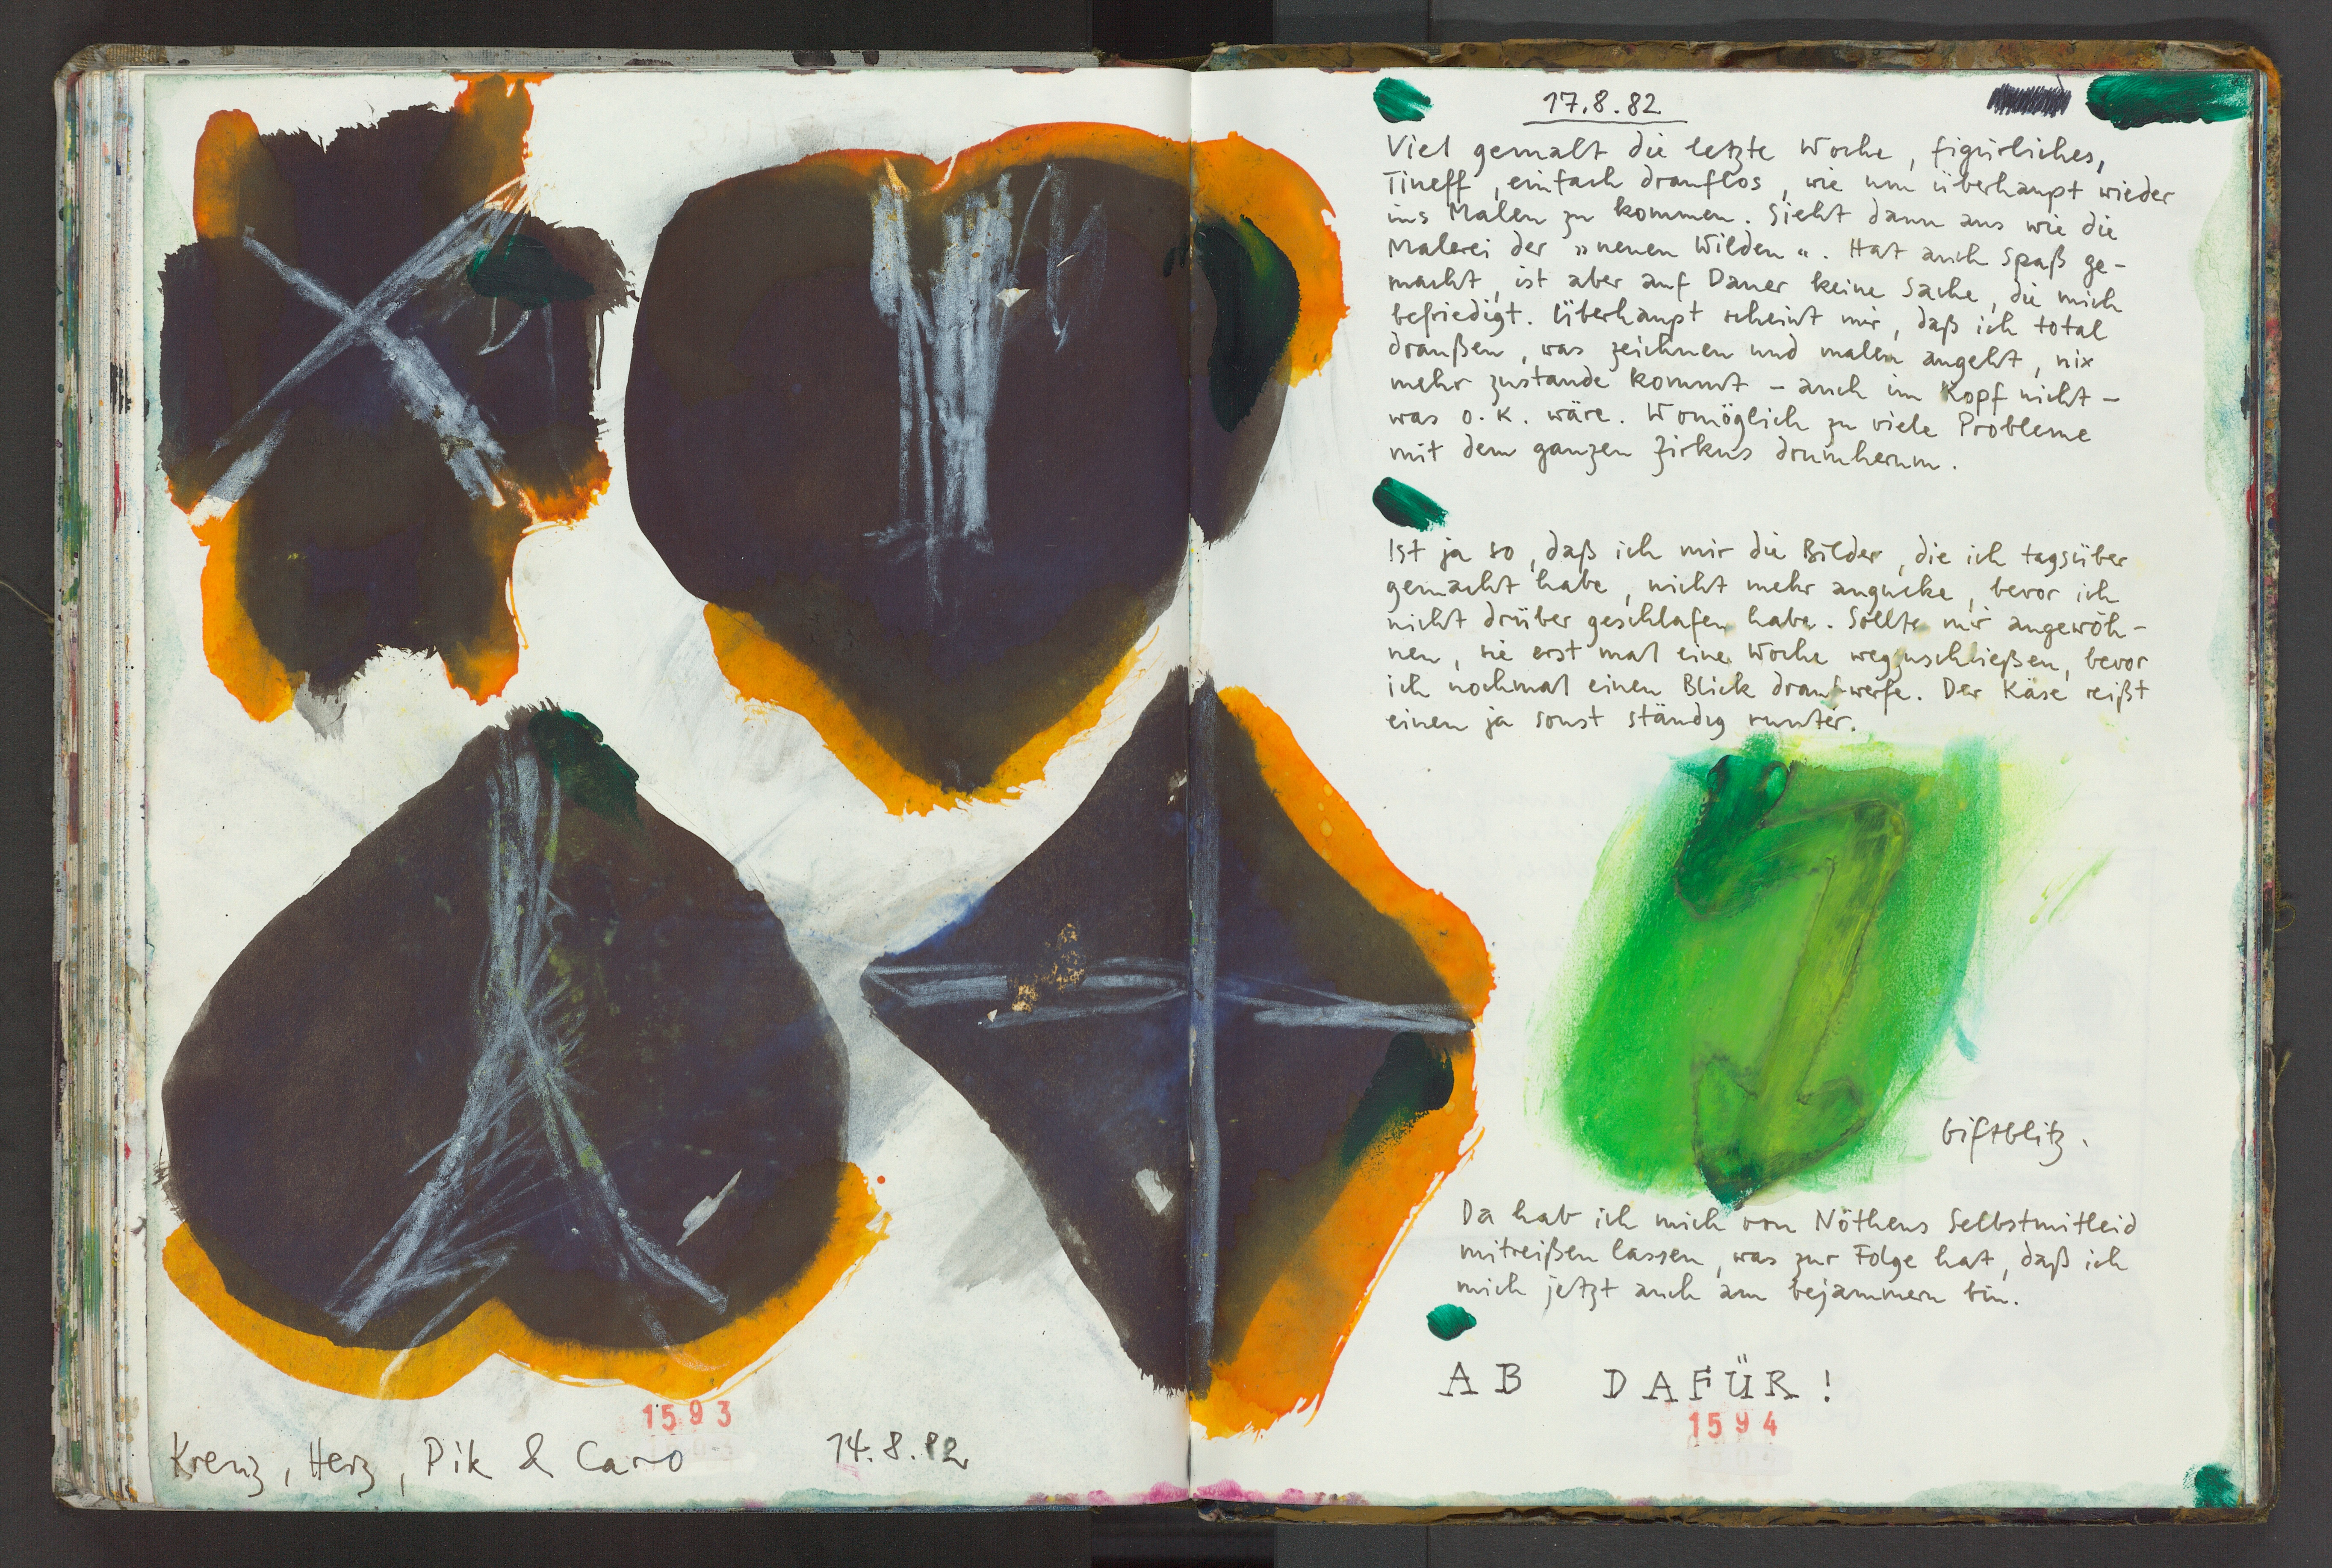 Kreuz, Herz, Pik & Caro 14.8.82
1593
17.8.82
Viel gemalt die letzte Woche, figürliches,
Tineff, einfach drauflos, wie um überhaupt wieder
ins Malen zu kommen. Sieht dann aus wie die
Malerei der „neuen Wilden“. Hat auch Spaß ge-
macht, ist aber auf Dauer keine Sache, die mich
befriedigt. Überhaupt scheint mir, daß ich total
draußen, was zeichnen und malen angeht, nix
mehr zustande kommt – auch im Kopf nicht –
was o.K. wäre. Womöglich zu viele Probleme
mit dem ganzen Zirkus drumherum.
Ist ja so, daß ich mir die Bilder, die ich tagsüber
gemacht habe, nicht mehr angucke, bevor ich
nicht drüber geschlafen habe. Sollte mir angewöh-
nen, sie erst mal eine Woche wegzuschließen, bevor
ich nochmal einen Blick draufwerfe. Der Käse reißt
einen ja sonst ständig runter.
Giftblitz.
Da hab ich mich von Nöthens Selbstmitleid
mitreißen lassen, was zur Folge hat, daß ich
mich jetzt auch am bejammern bin.
AB DAFÜR!
1594